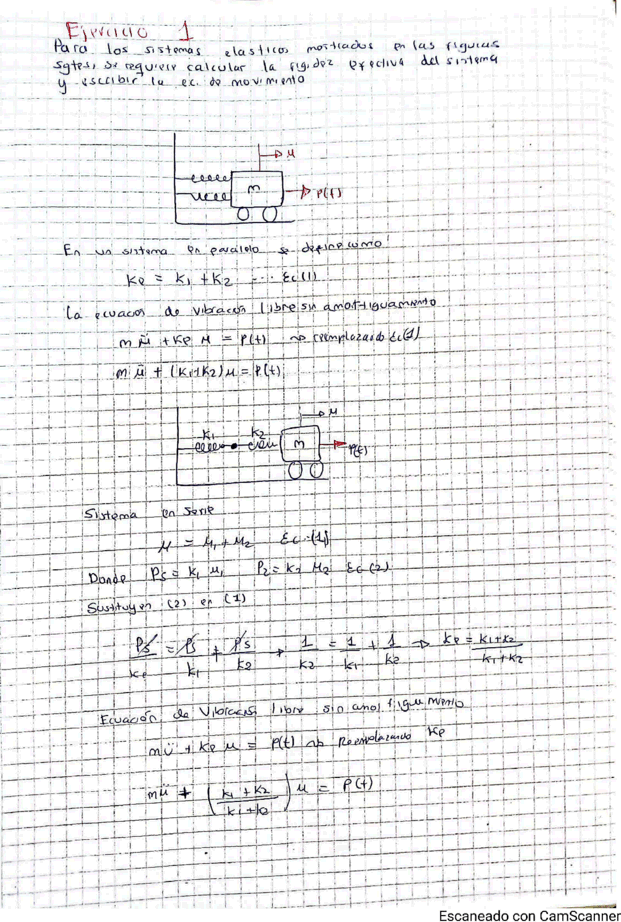 Ejercicio 1
Para los sistemas elasticos mostrados en las figuras
sgtes, se requiere calcular la rigidez efectiva del sistema
y escribir la ec. de movimiento
μ
m
P(t)
En un sistema en paralelo se define como
Ke = K1 + K2 ... Ec(1)
La ecuacion de vibración libre sin amortiguamiento
m μ̈ + Ke μ = P(t) → reemplazando Ec(1)
m μ̈ + (K1+K2) μ = P(t)
μ
K1 K2 m P(t)
Sistema en serie
μ = μ1 + μ2 Ec.(1)
Donde Ps = K1 μ1 Ps = K2 μ2 Ec(2)
Sustituyen (2) en (1)
Ps/Ke = Ps/K1 + Ps/K2 → 1/K2 = 1/K1 + 1/K2 → Ke = K1+K2/K1+K2
Ecuación de Vibración libre sin amortiguamiento
mü + Ke μ = P(t) → Reemplazando Ke
mü + (K1+K2/K1+K2) μ = P(t)
Escaneado con CamScanner